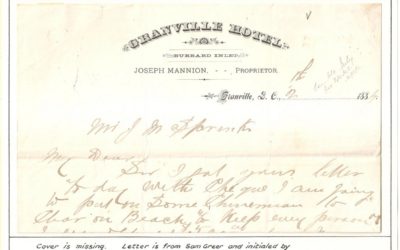 GRANVILLE HOTEL
BURRARD INLET
JOSEPH MANNION, - - PROPRIETOR.
Granville, B. C., 2 1884
Mr J M Spinks
My Dear
Sir I got yours letter
to day with Cheque I am going
to put on Some Chineman to
Clear on Beach, to Keep evry person
Cover is missing. Letter is from Sam Greer and initialed by